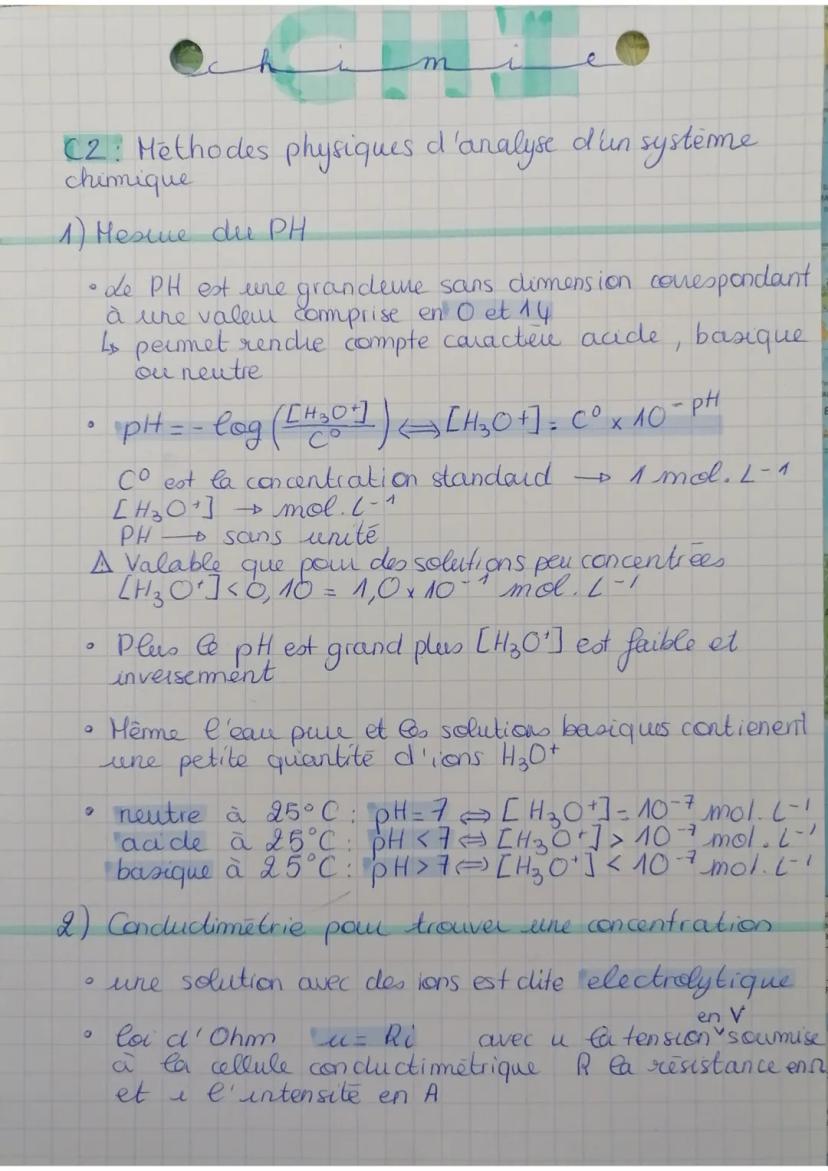 CHI
chimie
C2 : Méthodes physiques d'analyse d'un système
chimique
1) Mesure du PH
• Le PH est une grandeure sans dimension correspondant
à une valeur comprise en 0 et 14
↳ permet rendre compte caractère acide, basique
ou neutre
• pH = - log ([H3O+]/C°) ⟺ [H3O+] = C° x 10^-pH
C° est la concentration standard → 1 mol. L-1
[H3O+] → mol. L-1
PH → sans unité
⚠ Valable que pour des solutions peu concentrées
[H3O+] < 0,10 = 1,0 x 10^-1 mol. L-1
• Plus le pH est grand plus [H3O+] est faible et
inversement
• Même l'eau pure et les solutions basiques contienent
une petite quantité d'ions H3O+
• neutre à 25°C : pH = 7 ⟺ [H3O+] = 10^-7 mol. L-1
acide à 25°C : pH < 7 ⟺ [H3O+] > 10^-7 mol. L-1
basique à 25°C : pH > 7 ⟺ [H3O+] < 10^-7 mol. L-1
2) Conductimétrie pour trouver une concentration
• une solution avec des ions est dite electrolytique
• loi d'Ohm u = Ri avec u la tension en V soumise
à la cellule conductimétrique R la résistance en Ω
et i l'intensité en A